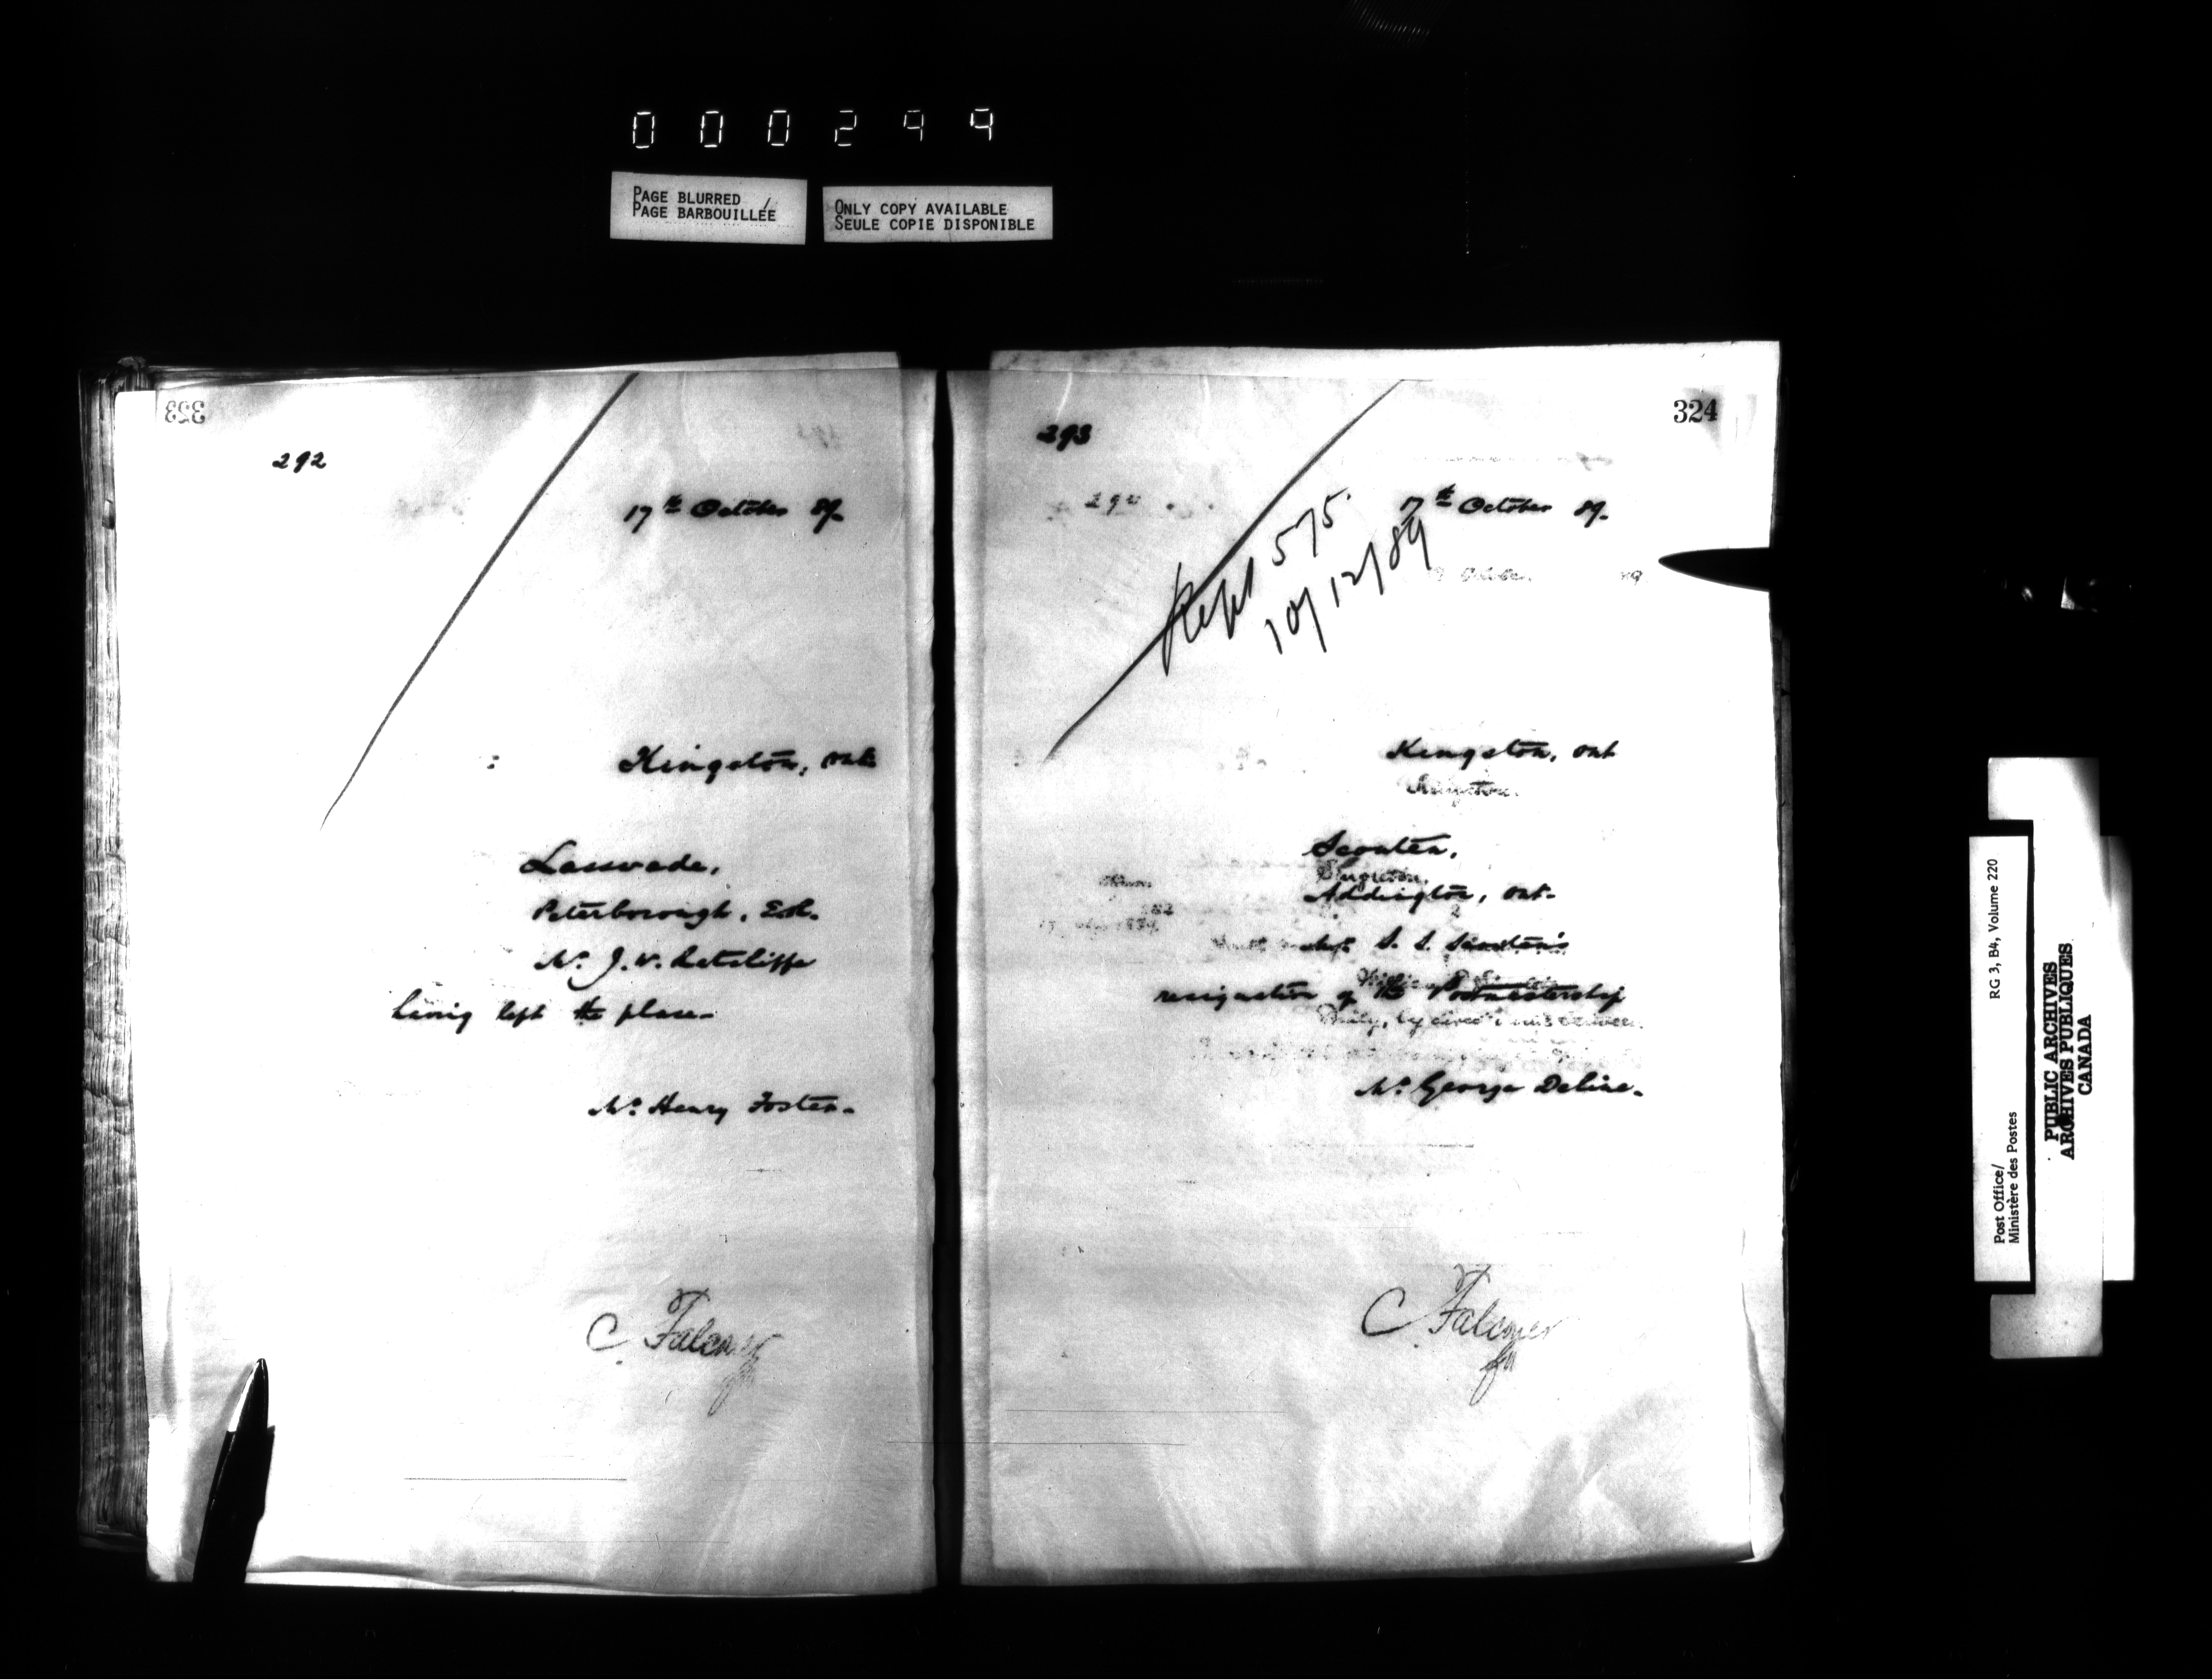 000299
PAGE BLURRED
PAGE BARBOUILLÉE
ONLY COPY AVAILABLE
SEULE COPIE DISPONIBLE
323
292
17th October 89.
Kingston, Ont
Lasswade,
Peterborough, E.R.
Mr. J. W. Ratcliffe
having left the place.
Mr. Henry Foster.
C. Falconer
324
293
17th October 89.
Rept 575.
10/12/89
Kingston, Ont
Kingston.
Scouten,
Addington, Ont.
S. S. Scouten's
resignation of the Postmastership
Mr. George Deline.
C. Falconer
Post Office/
Ministère des Postes
RG 3, B4, Volume 220
PUBLIC ARCHIVES
ARCHIVES PUBLIQUES
CANADA